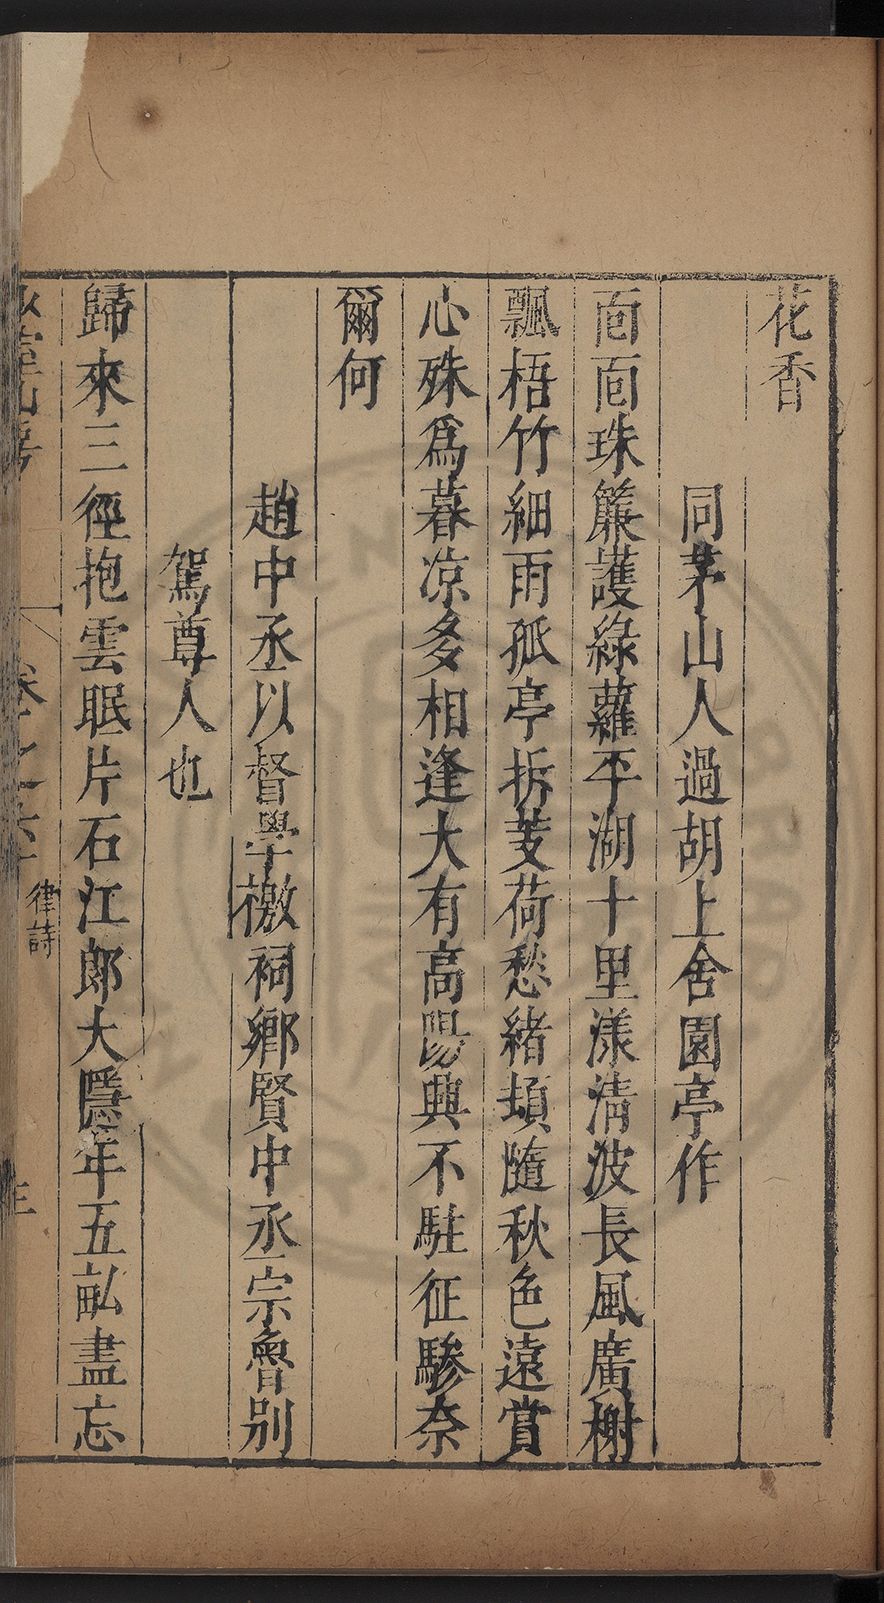 花香
同茅山人過胡上舍園亭作
面面珠簾護綠蘿平湖十里漾清波長風廣榭
飄梧竹細雨孤亭拆芰荷愁緒頓隨秋色遠賞
心殊爲暮凉多相逢大有高陽興不駐征驂奈
爾何
趙中丞以督學檄祠鄉賢中丞宗魯別
駕尊人也
歸來三徑抱雲眠片石江郎大隱年五畝盡忘
山房
卷之六十
律詩